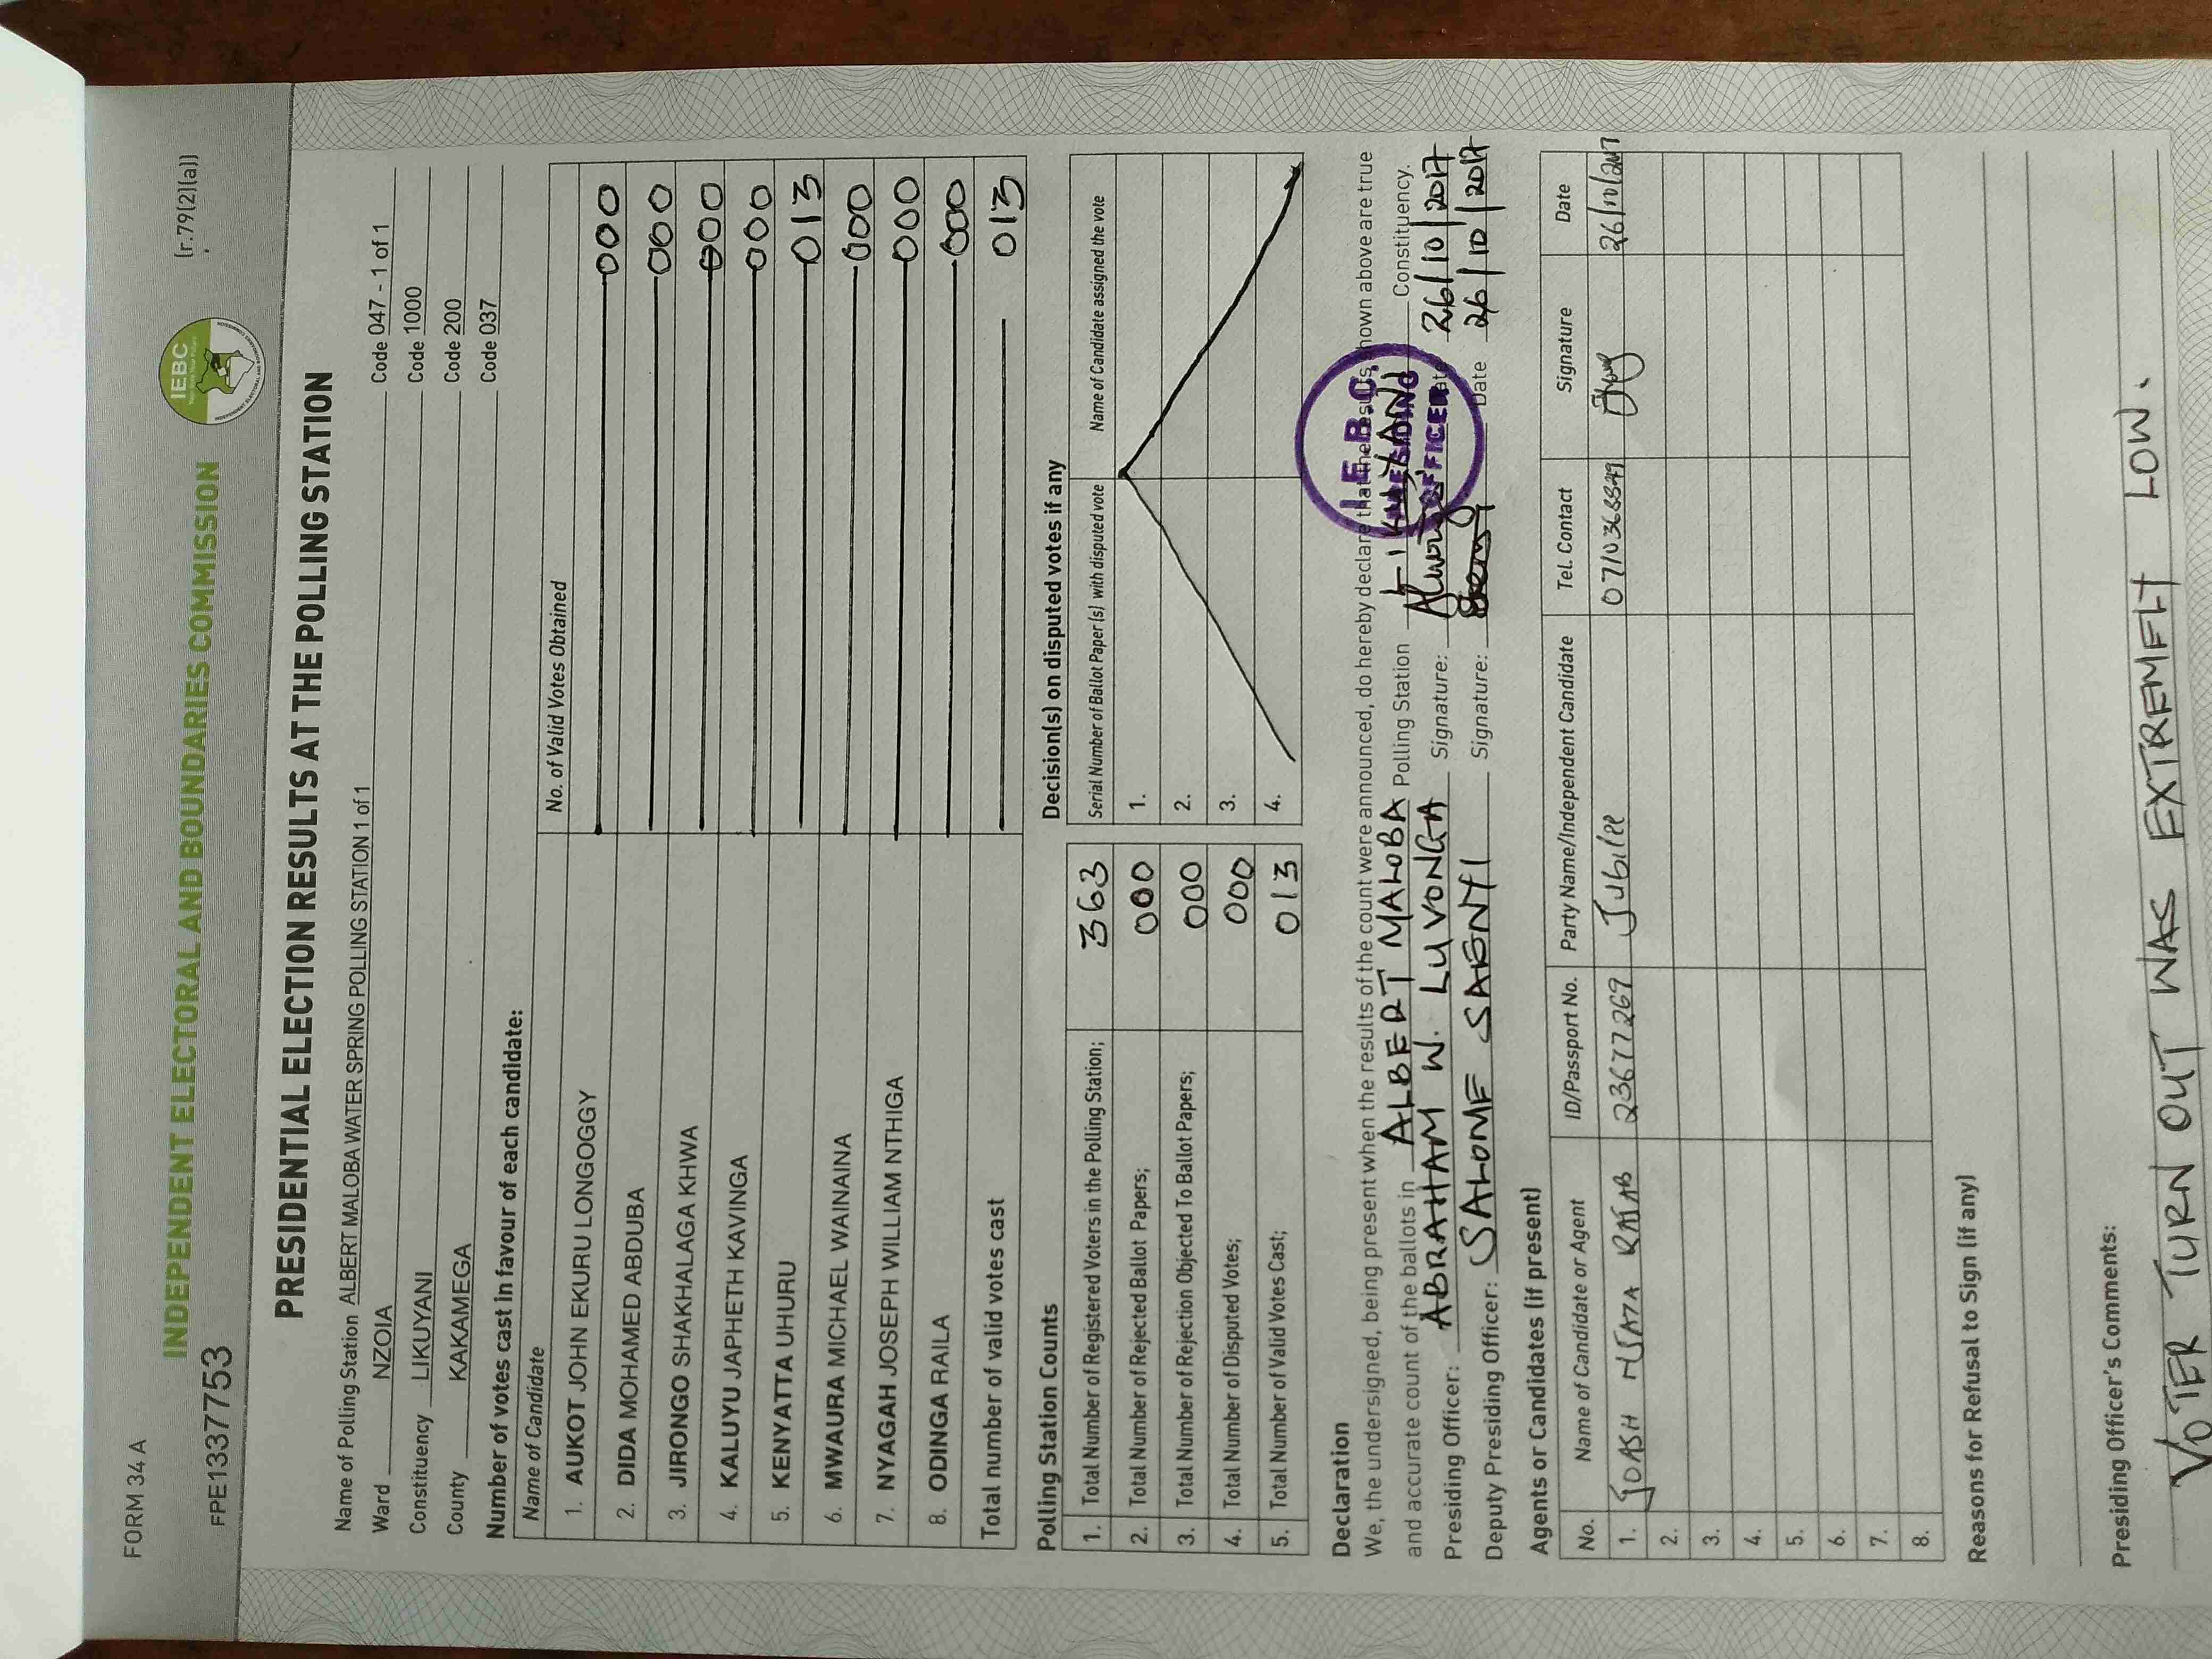 FORM 34 A
(r.79(2)(a))
IEBC
INDEPENDENT ELECTORAL AND BOUNDARIES COMMISSION
FPE1337753
PRESIDENTIAL ELECTION RESULTS AT THE POLLING STATION
Name of Polling Station ALBERT MALOBA WATER SPRING POLLING STATION 1 of 1 Code 047 - 1 of 1
Ward NZOIA Code 1000
Constituency LIKUYANI Code 200
County KAKAMEGA Code 037
Number of votes cast in favour of each candidate:
Name of Candidate No. of Valid Votes Obtained
1. AUKOT JOHN EKURU LONGOGGY 000
2. DIDA MOHAMED ABDUBA 000
3. JIRONGO SHAKHALAGA KHWA 000
4. KALUYU JAPHETH KAVINGA 000
5. KENYATTA UHURU 013
6. MWAURA MICHAEL WAINAINA 000
7. NYAGAH JOSEPH WILLIAM NTHIGA 000
8. ODINGA RAILA 000
Total number of valid votes cast 013
Polling Station Counts
1. Total Number of Registered Voters in the Polling Station; 363
2. Total Number of Rejected Ballot Papers; 000
3. Total Number of Rejection Objected To Ballot Papers; 000
4. Total Number of Disputed Votes; 000
5. Total Number of Valid Votes Cast; 013
Decision(s) on disputed votes if any
Serial Number of Ballot Paper (s) with disputed vote Name of Candidate assigned the vote
1.
2.
3.
4.
Declaration
We, the undersigned, being present when the results of the count were announced, do hereby declare that the results shown above are true
and accurate count of the ballots in ALBERT MALOBA Polling Station LIKUYANI Constituency.
Presiding Officer: ABRAHAM W. LUVONGA Signature: Date 26/10/2017
Deputy Presiding Officer: SALOME SAENYI Signature: Date 26/10/2017
I.E.B.C.
PRESIDING
OFFICER
Agents or Candidates (if present)
No. Name of Candidate or Agent ID/Passport No. Party Name/Independent Candidate Tel. Contact Signature Date
1. JOASH 23677269 Jubilee 0710368849 26/10/2017
2.
3.
4.
5.
6.
7.
8.
Reasons for Refusal to Sign (if any)
Presiding Officer's Comments:
VOTER TURN OUT WAS EXTREMELY LOW.